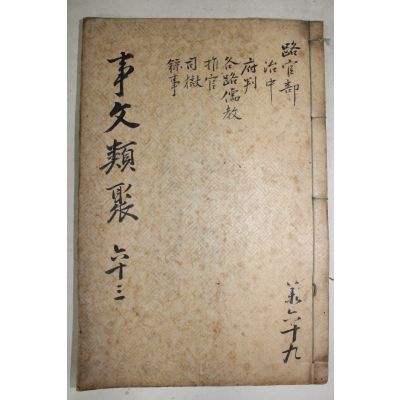 路官部
治中
府判
各路儒教
推官
司獄
錄事
事文類聚 六十三
共六十九